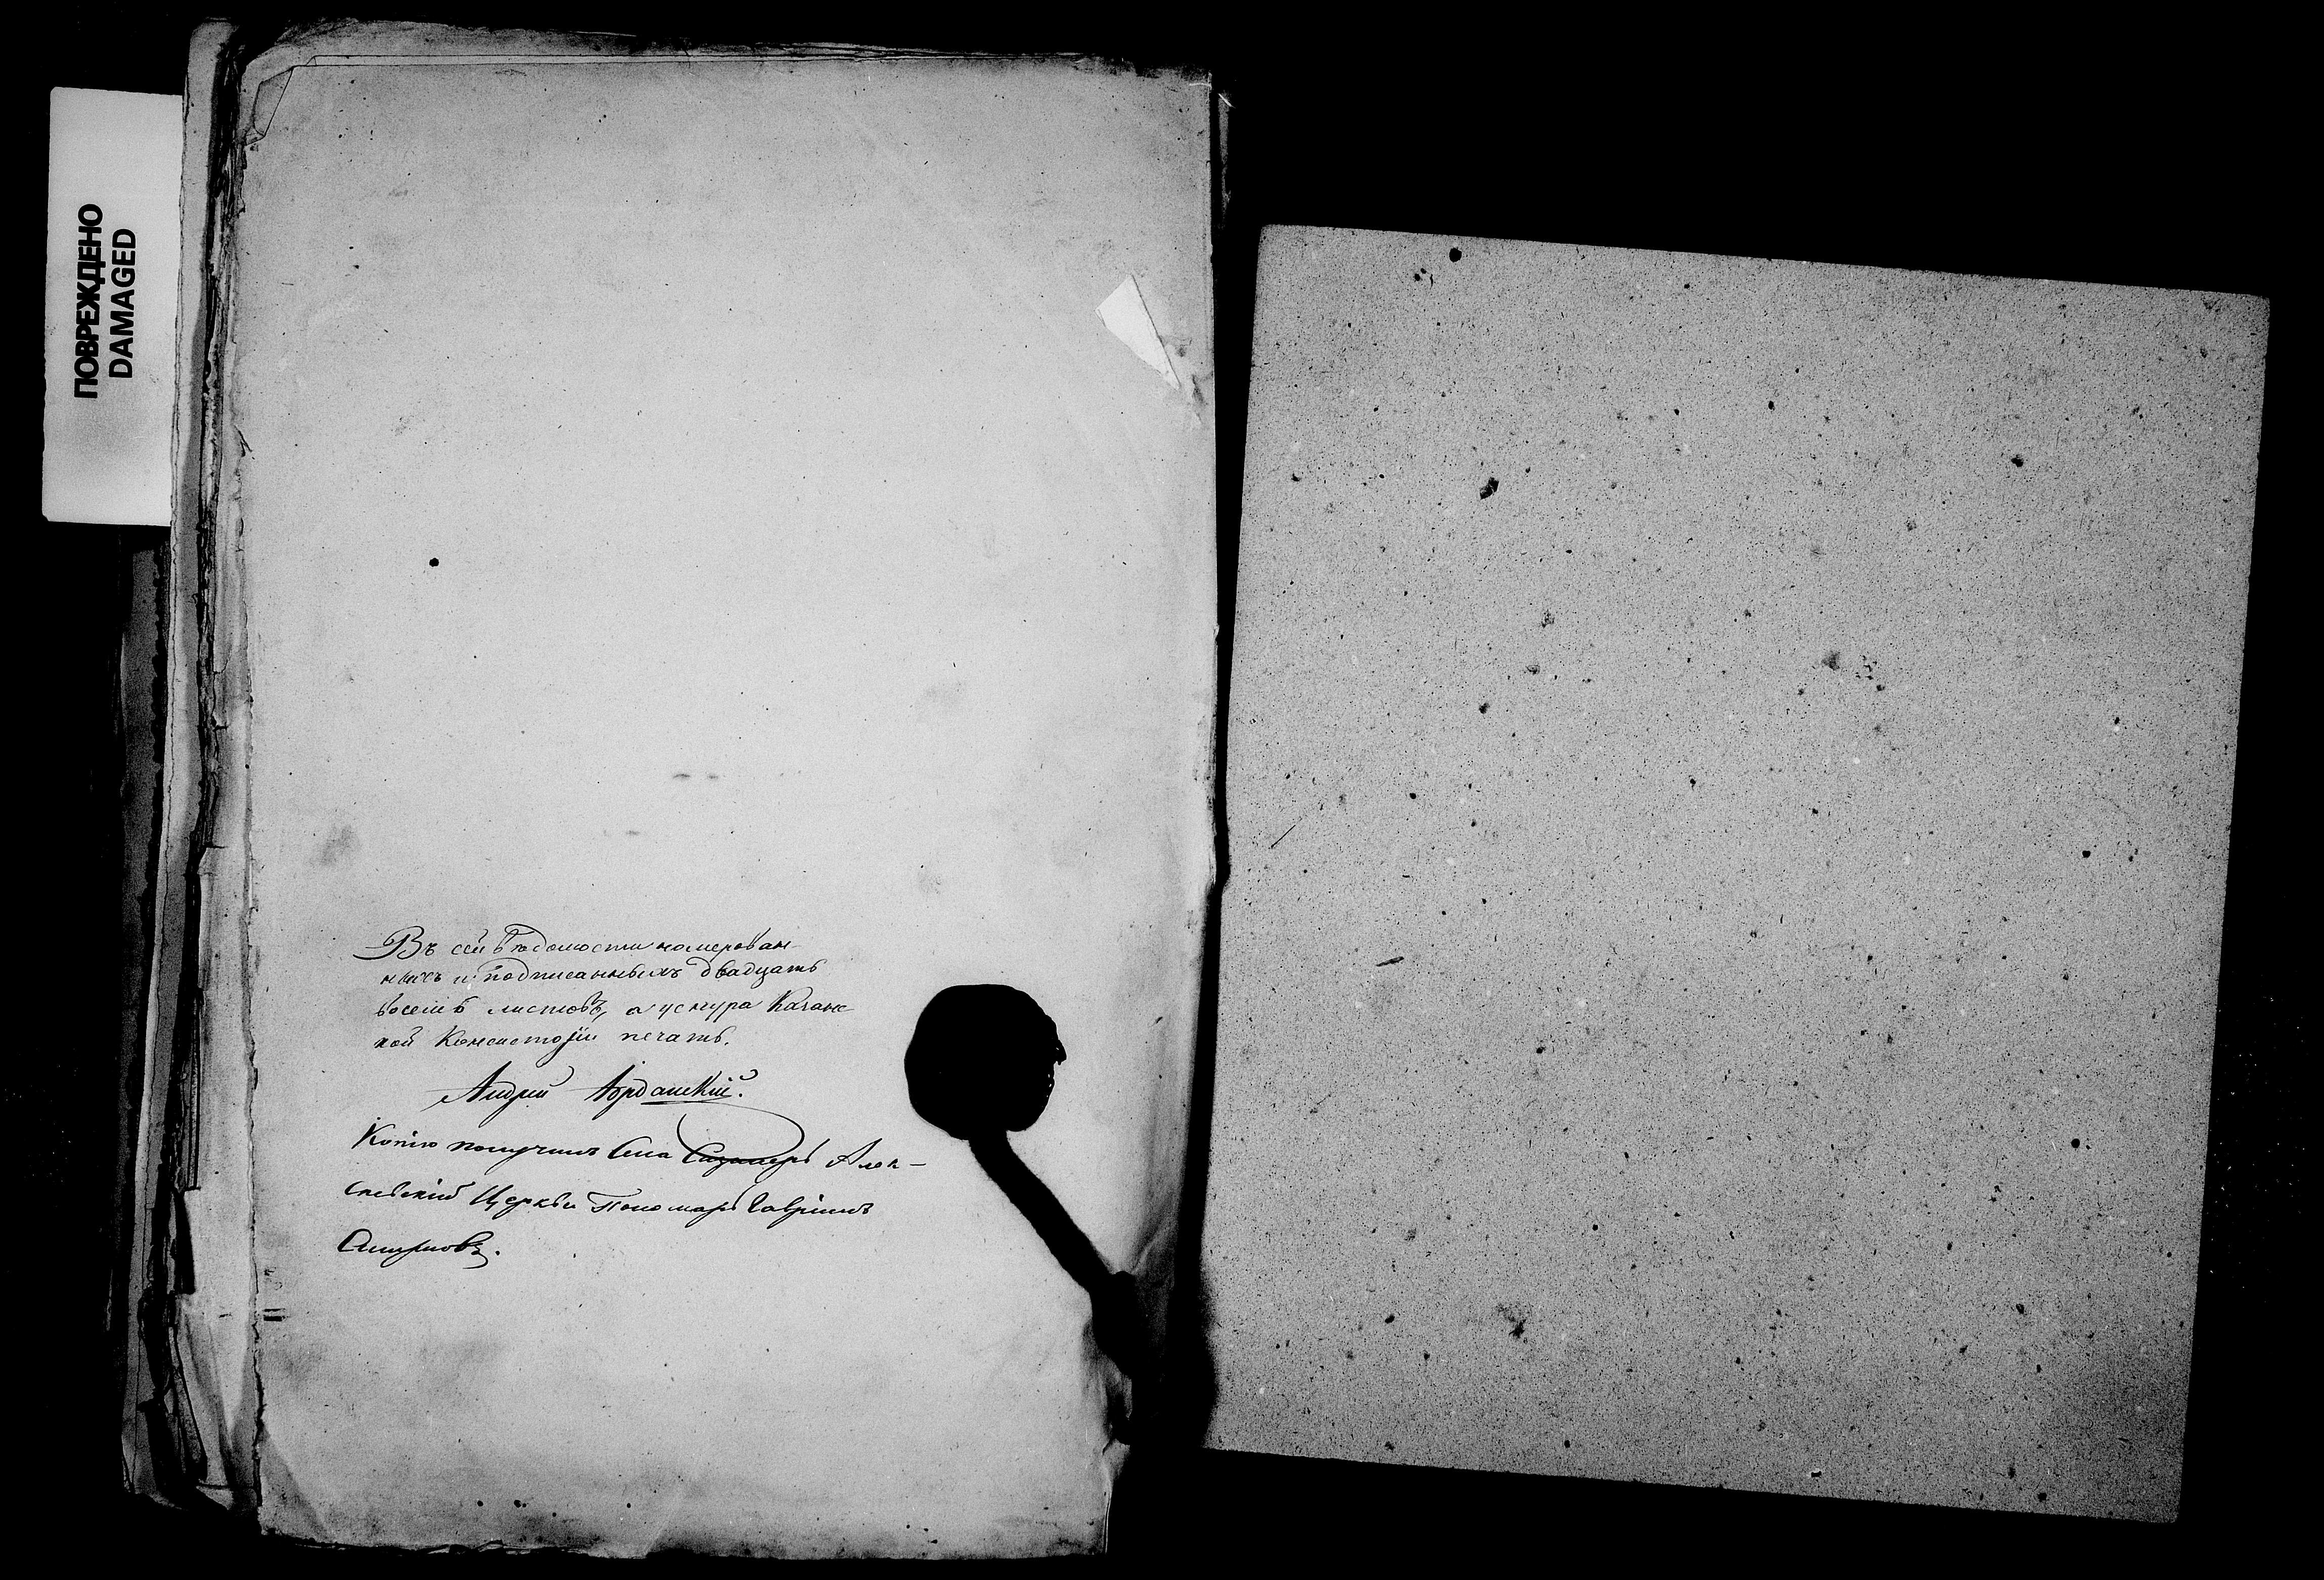 ПОВРЕЖДЕНО
DAMAGED
Въ сей вѣдомости номерован
ныхъ и подписанныхъ двадцать
восемь листовъ, а у снура Казанс
кой Консисторіи печать.
Андрей
Копію получилъ Села Алек-
сѣевской Церкви Пономарь Гавріилъ
Смирновъ.